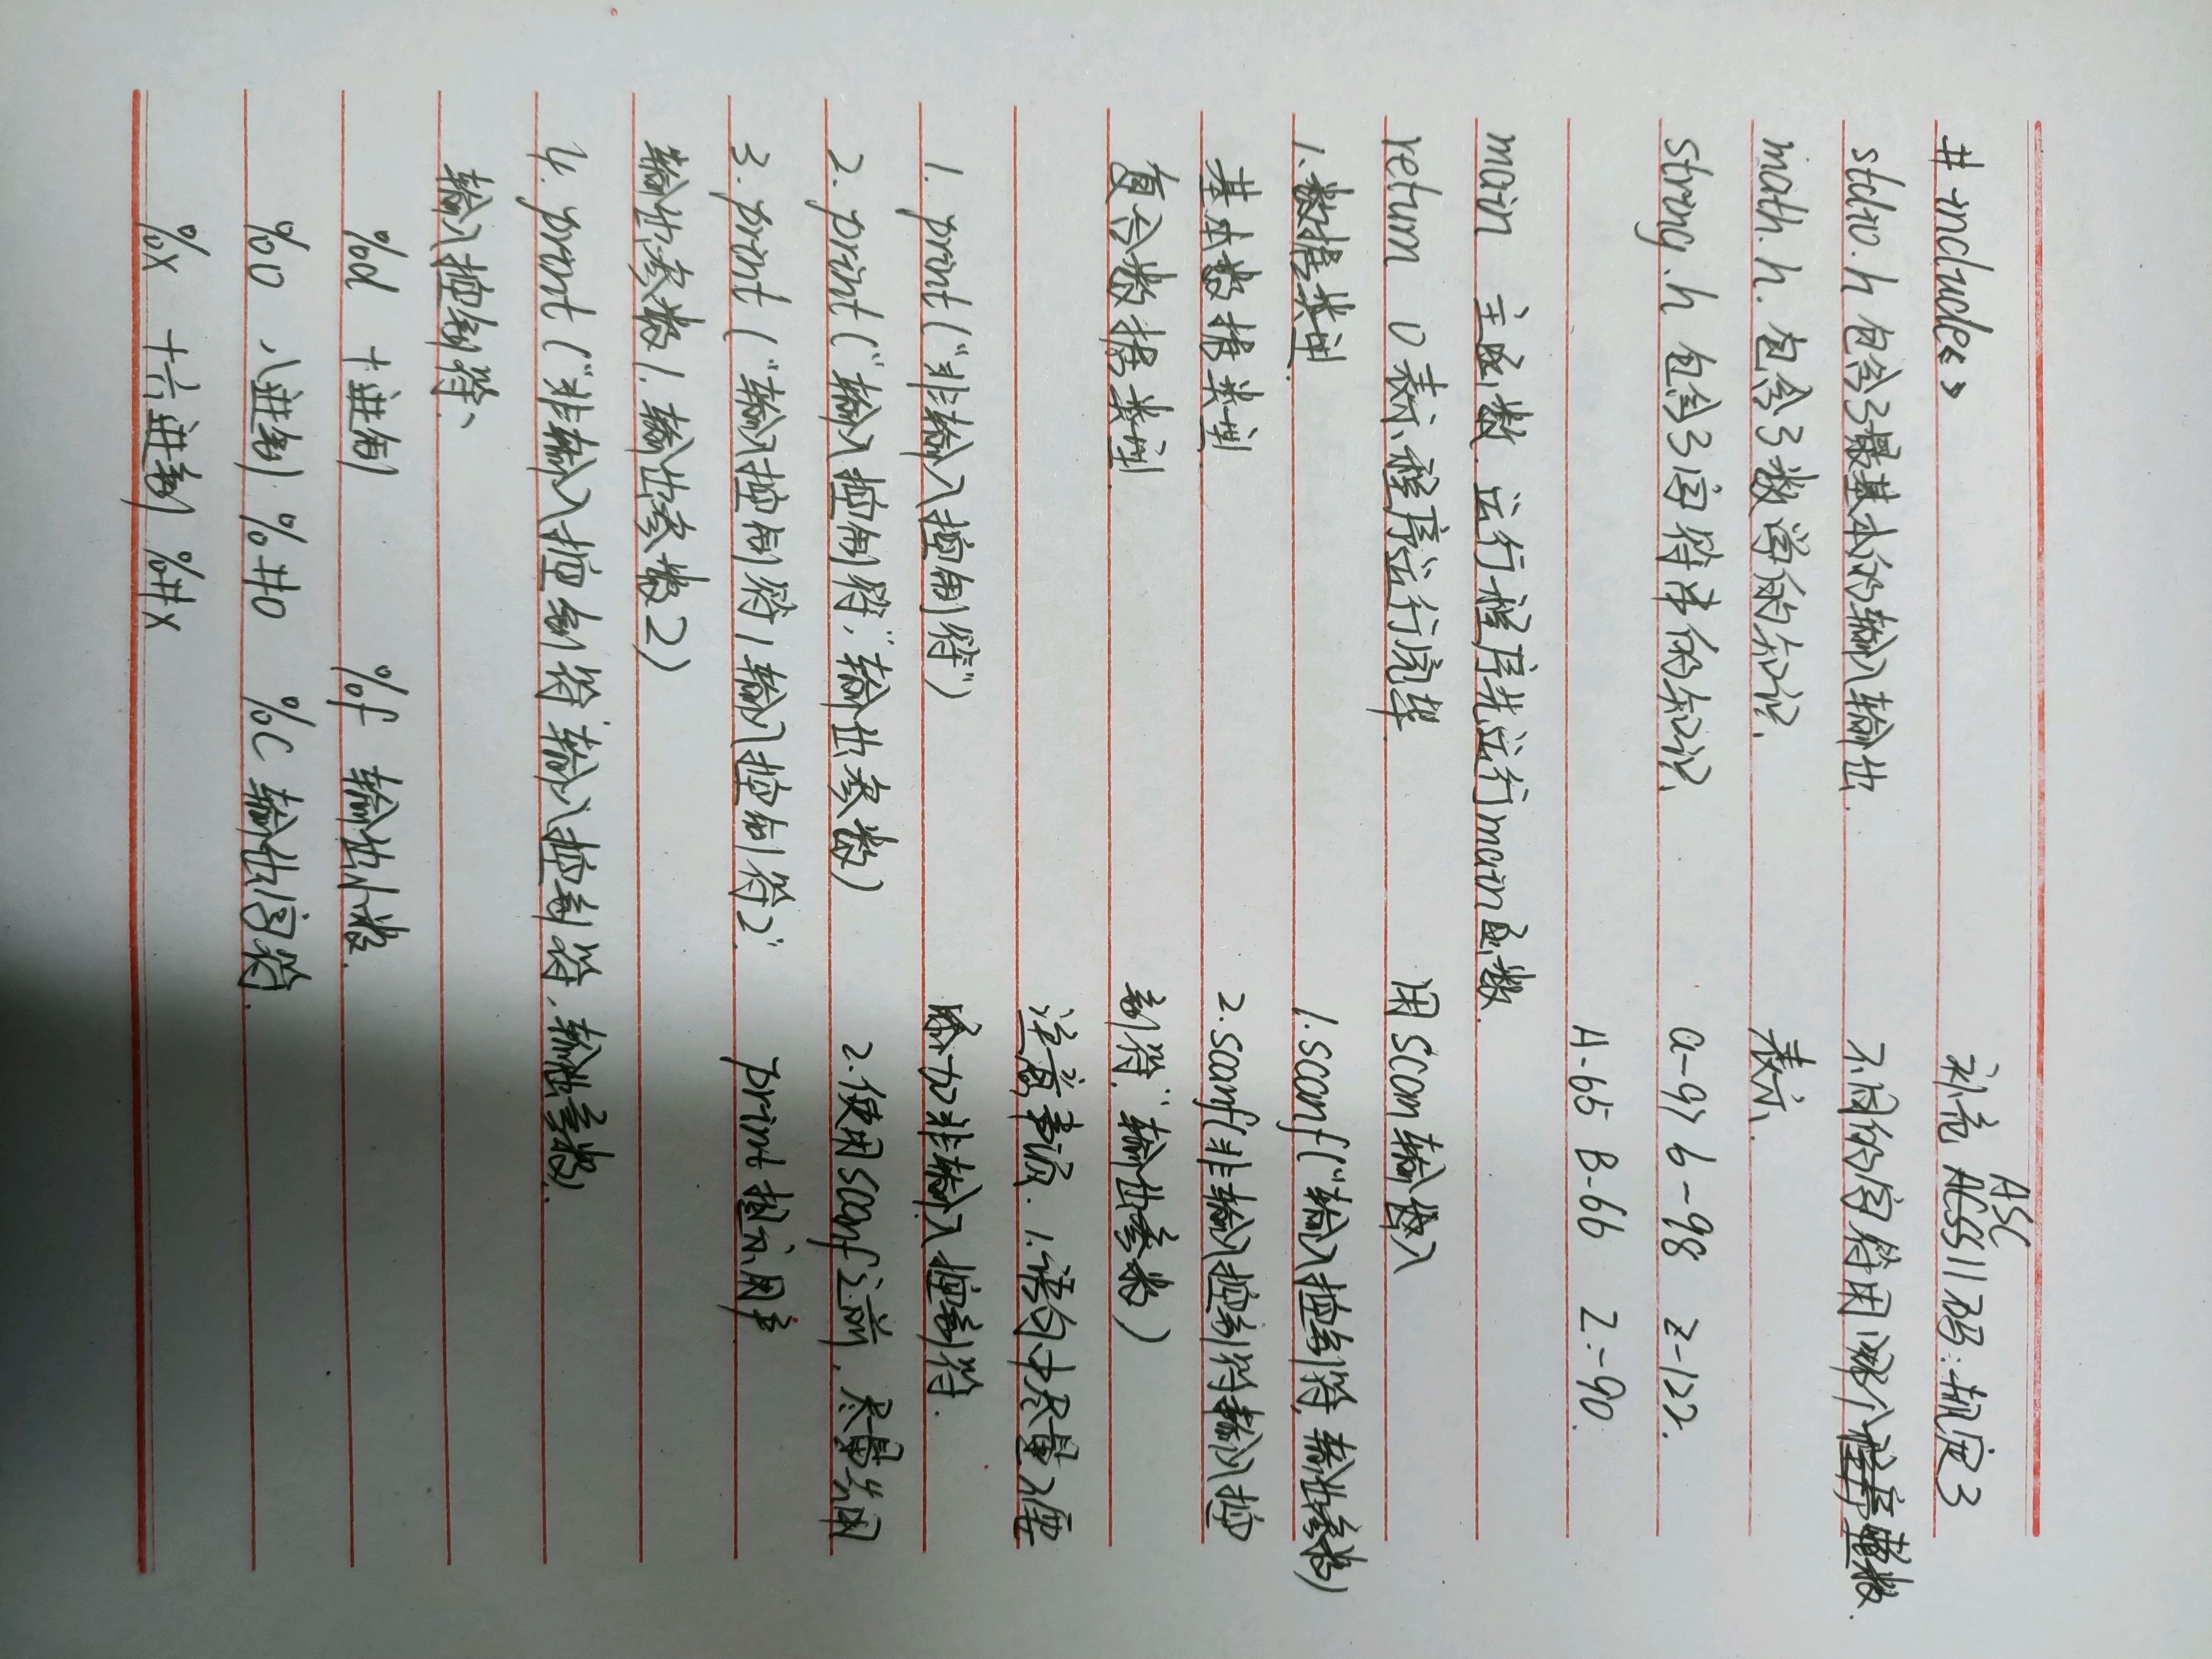 #include<>
stdio.h 包含了最基本的输入输出.
math.h. 包含了数学的知识.
string.h 包含了字符串的知识.
main 主函数. 运行程序先运行main函数.
return 0 表示程序运行完毕.
1.数据类型.
基本数据类型
复合数据类型.
1. print("非输入控制符")
2. print("输入控制符,"输出参数)
3. print("输入控制符1输入控制符2".
输出参数1.输出参数2)
4. print("非输入控制符"输入控制符,输出参数).
输入控制符、
%d 十进制 %f 输出小数.
%o 八进制 %#o %c 输出字符.
%x 十六进制 %#x
补充 ASCII码:规定了
不同的字符用哪个整数.
表示.
a-97 b-98 z-122.
A-65 B-66 Z-90.
用scan输入
1.scanf("输入控制符,输出参数)
2.scanf(非输入控制符输入控
制符,"输出参数)
注意事项. 1.语句中尽量不要
添加非输入控制符.
2.使用scanf之前,尽量先用
print提示用户